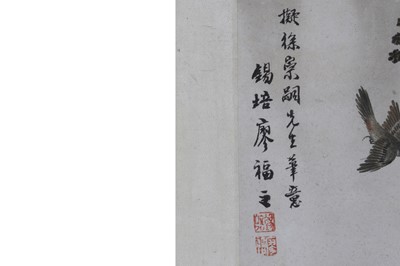 擬徐崇嗣先生筆意
錫培廖福之